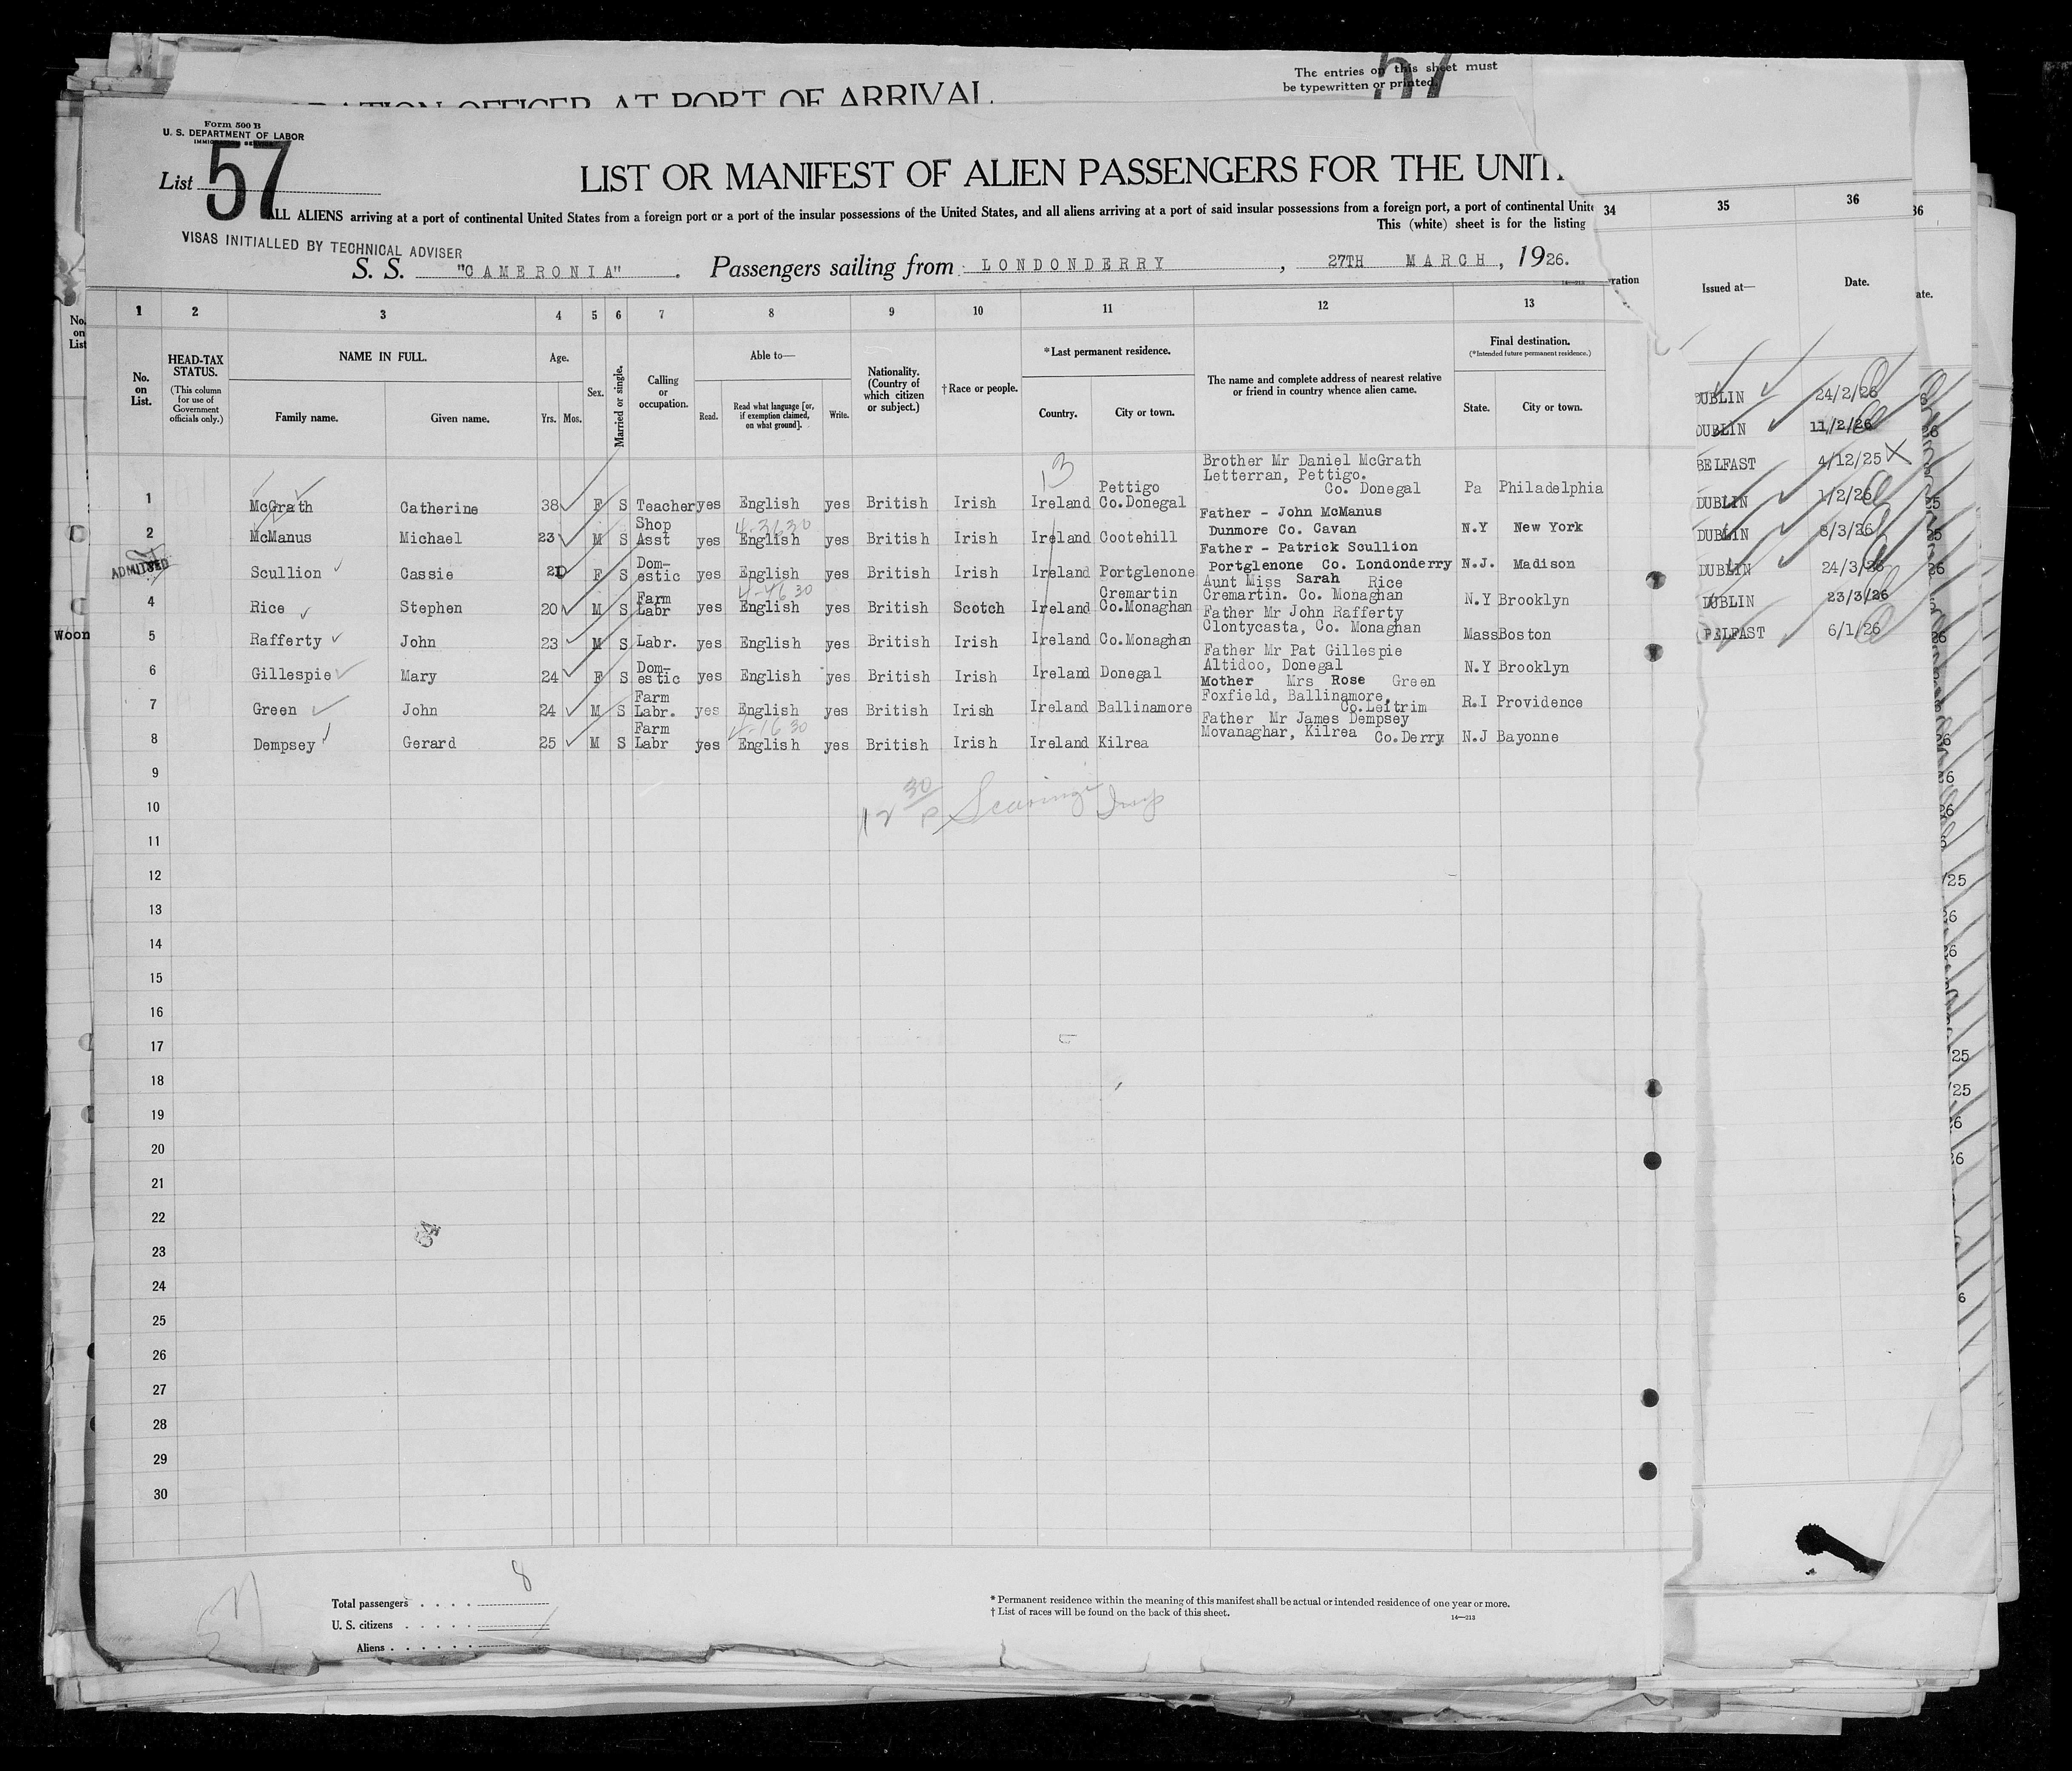 RATION OFFICER AT PORT OF ARRIVAL
The entries on this sheet must
be typewritten or printed.
57
Form 500 B
U. S. DEPARTMENT OF LABOR
IMMIGRATION SERVICE
List 57
LIST OR MANIFEST OF ALIEN PASSENGERS FOR THE UNIT
ALL ALIENS arriving at a port of continental United States from a foreign port or a port of the insular possessions of the United States, and all aliens arriving at a port of said insular possessions from a foreign port, a port of continental Unite
This (white) sheet is for the listing
VISAS INITIALLED BY TECHNICAL ADVISER
S. S. "CAMERONIA". Passengers sailing from LONDONDERRY, 27TH MARCH, 1926.
14—213
34 35 36 36
ration Issued at— Date. ate.
No. on List
1 2 3 4 5 6 7 8 9 10 11 12 13
No. on List.
HEAD-TAX STATUS.
(This column for use of Government officials only.)
NAME IN FULL.
Family name. Given name.
Age.
Yrs. Mos.
Sex.
Married or single.
Calling or occupation.
Able to—
Read. Read what language [or, if exemption claimed, on what ground]. Write.
Nationality. (Country of which citizen or subject.)
†Race or people.
*Last permanent residence.
Country. City or town.
The name and complete address of nearest relative or friend in country whence alien came.
Final destination.
(*Intended future permanent residence.)
State. City or town.
13
1 McGrath Catherine 38 F S Teacher yes English yes British Irish Ireland Pettigo Co.Donegal Brother Mr Daniel McGrath Letterran, Pettigo. Co. Donegal Pa Philadelphia
2 McManus Michael 23 M S Shop Asst yes English yes British Irish Ireland Cootehill Father - John McManus Dunmore Co. Cavan N.Y New York
ADMITTED Scullion Cassie 21 F S Dom- estic yes English yes British Irish Ireland Portglenone Father - Patrick Scullion Portglenone Co. Londonderry N.J. Madison
4 Rice Stephen 20 M S Farm Labr yes English yes British Scotch Ireland Cremartin Co.Monaghan Aunt Miss Sarah Rice Cremartin. Co. Monaghan N.Y Brooklyn
5 Rafferty John 23 M S Labr. yes English yes British Irish Ireland Co.Monaghan Father Mr John Rafferty Clontycasta, Co. Monaghan Mass Boston
6 Gillespie Mary 24 F S Dom- estic yes English yes British Irish Ireland Donegal Father Mr Pat Gillespie Altidoo, Donegal N.Y Brooklyn
7 Green John 24 M S Farm Labr. yes English yes British Irish Ireland Ballinamore Mother Mrs Rose Green Foxfield, Ballinamore, Co.Leitrim R.I Providence
8 Dempsey Gerard 25 M S Farm Labr yes English yes British Irish Ireland Kilrea Father Mr James Dempsey Movanaghar, Kilrea Co.Derry N.J Bayonne
DUBLIN 24/2/26
DUBLIN 11/2/26
BELFAST 4/12/25
DUBLIN 1/2/26
DUBLIN 8/3/26
DUBLIN 24/3/26
DUBLIN 23/3/26
BELFAST 6/1/26
Woon
9
10
11
12
13
14
15
16
17
18
19
20
21
22
23
24
25
26
27
28
29
30
Total passengers 8
U. S. citizens
Aliens
* Permanent residence within the meaning of this manifest shall be actual or intended residence of one year or more.
† List of races will be found on the back of this sheet.
14—213